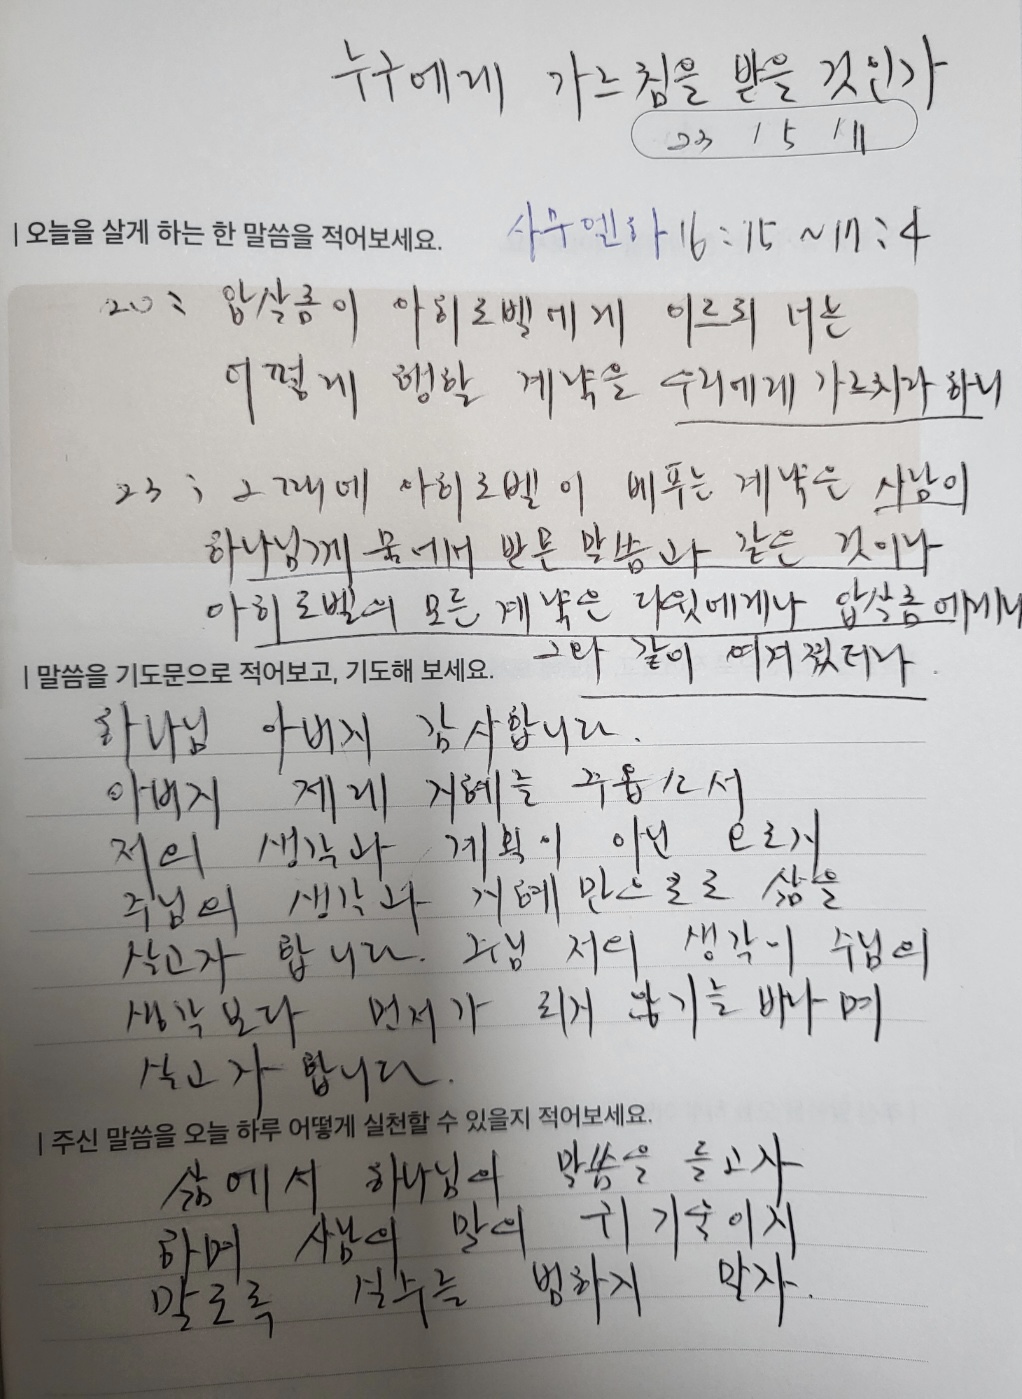 누구에게 가르침을 받을 것인가
23 / 5 / 11
| 오늘을 살게 하는 한 말씀을 적어보세요. 사무엘하 16:15~17:4
20: 압살롬이 아히도벨에게 이르되 너는
어떻게 행할 계략을 우리에게 가르치라 하니
23: 그 때에 아히도벨이 베푸는 계략은 사람이
하나님께 물어서 받은 말씀과 같은 것이라
아히도벨의 모든 계략은 다윗에게나 압살롬에게나
그와 같이 여겨졌더라.
| 말씀을 기도문으로 적어보고, 기도해 보세요.
하나님 아버지 감사합니다.
아버지 제게 지혜를 주옵소서
저의 생각과 계획이 아닌 오로지
주님의 생각과 지혜만으로 삶을
살고자 합니다. 주님 저의 생각이 주님의
생각보다 먼저가 되지 않기를 바라며
살고자 합니다.
| 주신 말씀을 오늘 하루 어떻게 실천할 수 있을지 적어보세요.
삶에서 하나님의 말씀을 듣고자
하며 사람의 말의 귀 기울이지
말도록 실수를 범하지 말자.